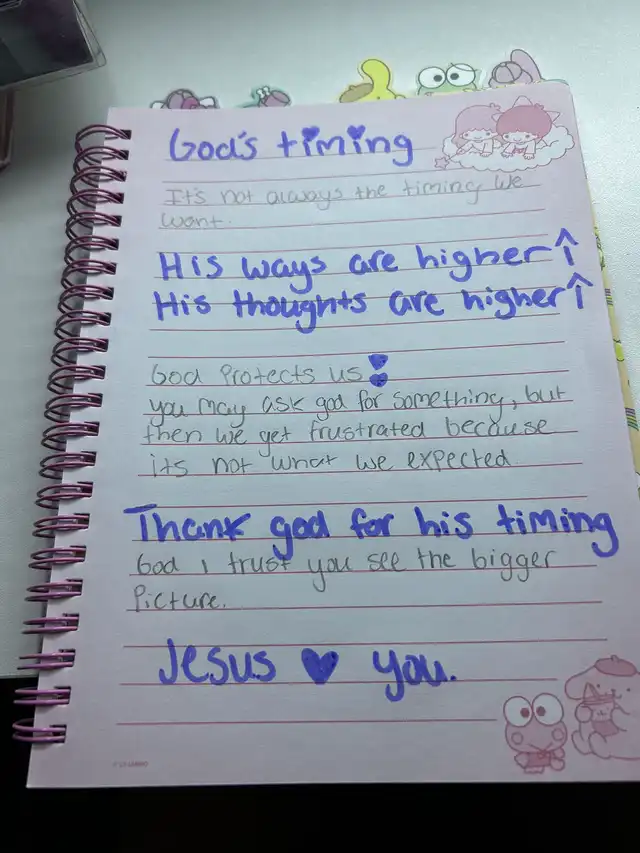 God's timing
It's not always the timing we
want.
His ways are higher ↑
His thoughts are higher ↑
God protects us
you may ask god for something, but
then we get frustrated because
its not what we expected
Thank god for his timing
God i trust you see the bigger
picture.
Jesus ♥ you.